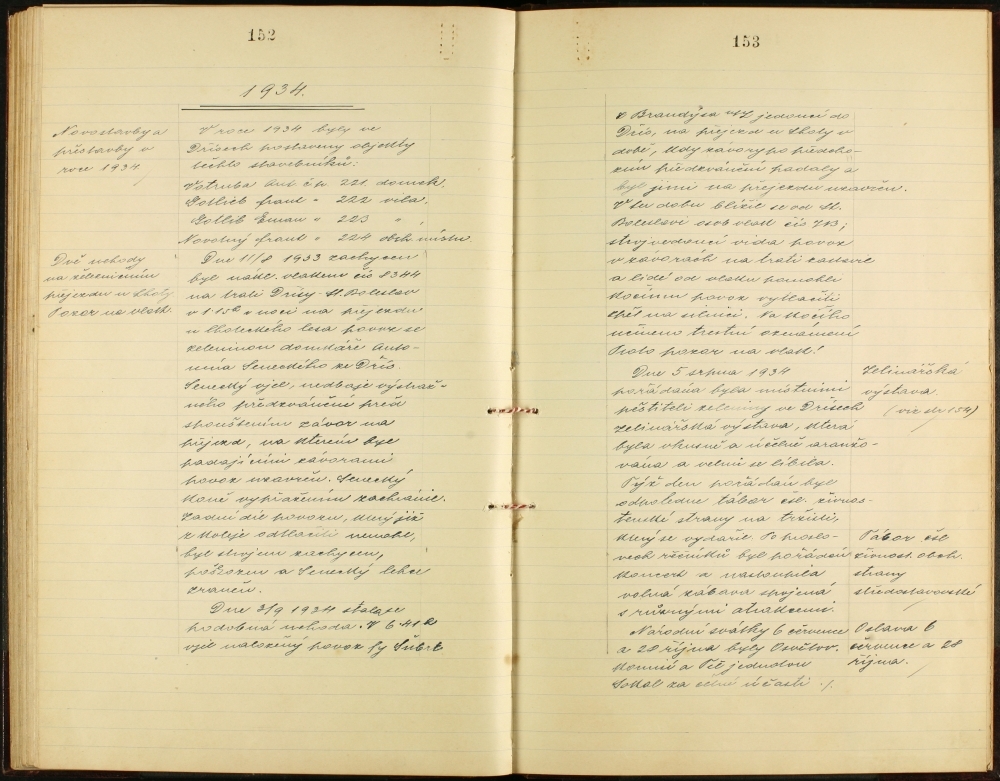 152
1934.
Novostavby a
přestavby v
roce 1934.
V roce 1934 byly ve
Dřísech postaveny objekty
těchto stavebníků:
Votruba Ant. čp. 221. domek.
Gottlieb Frant. " 222 vila.
Gottlib Eman. " 223 " "
Novotný Frant. " 224 obch. místn.
Dvě nehody
na železničním
přejezdu u Lhoty
Pozor na vlak.
Dne 11/8 1933 zachycen
byl nákl. vlakem čís 8344
na trati Dřísy-St. Boleslav
v 1.15 h v noci na přejezdu
u Lhoteckého lesa povoz se
zeleninou domkáře Anto-
nína Seneckého ze Dřís.
Senecký vjel, nedbaje výstraž-
ného předzvánění před
spouštěním závor na
přejezd, na kterém byl
padajícími závorami
povoz uzavřen. Senecký
koně vypřažením zachránil.
Zadní díl povozu, který již
z koleje odtlačiti nemohl,
byl strojem zachycen,
poškozen a Senecký lehce
zraněn.
Dne 3/9 1934 stala se
podobná nehoda. V 6.41 h
vjel naložený povoz fy Šubrt
153
v Brandýse n/L jedoucí do
Dřís, na přejezd u Lhoty v
době, kdy závory po předcho-
zím předzvánění padaly a
byl jimi na přejezdu uzavřen.
V tu dobu blížil se od St.
Boleslavi osob. vlak čís 713;
strojvedoucí vida povoz
v závorách na trati zastavil
a lidé od vlaku pomohli
kočímu povoz vytlačiti
zpět na silnici. Na kočího
učiněno trestní oznámení
Proto pozor na vlak!
Dne 5 srpna 1934
pořádána byla místními
pěstiteli zeleniny ve Dřísech
zelinářská výstava, která
byla vkusně a účelně aranžo-
vána a velmi se líbila.
Zelinářská
výstava.
(viz str 154)
Týž den pořádán byl
odpoledne tábor čsl. živnos-
tenské strany na tržišti,
který se vydařil. Po proslo-
vech řečníků byl pořádán
koncert a nastoupila
volná zábava spojená
s různými atrakcemi.
Tábor čsl
živnost. obch.
strany
středostavovské
Národní svátky 6 července
a 28 října byly Osvětov.
komisí a Těl. jednotou
Sokol za účasti ./.
Oslava 6
července a 28
října.